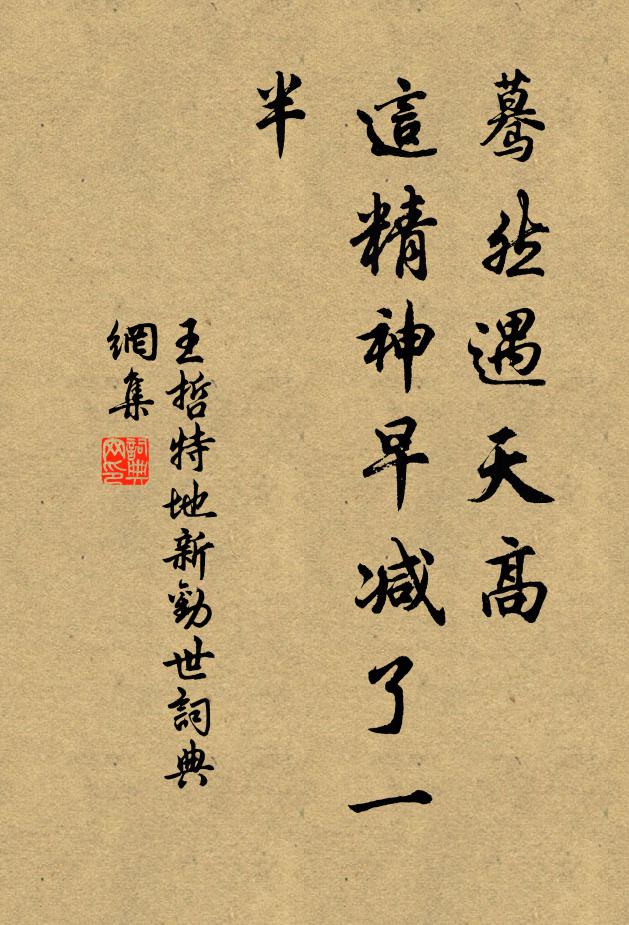 驀然遇天高
這精神早减了一
半
王哲特地新勸世詞典
網集
詞典
网印